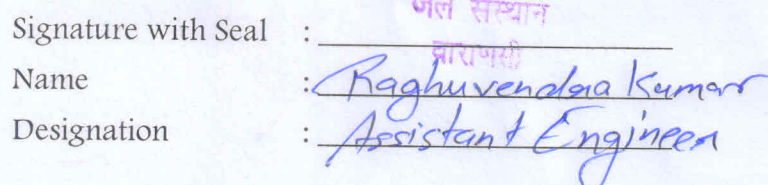 जल संस्थान
Signature with Seal :
वाराणसी
Name : Raghuvendra Kumar
Designation : Assistant Engineer